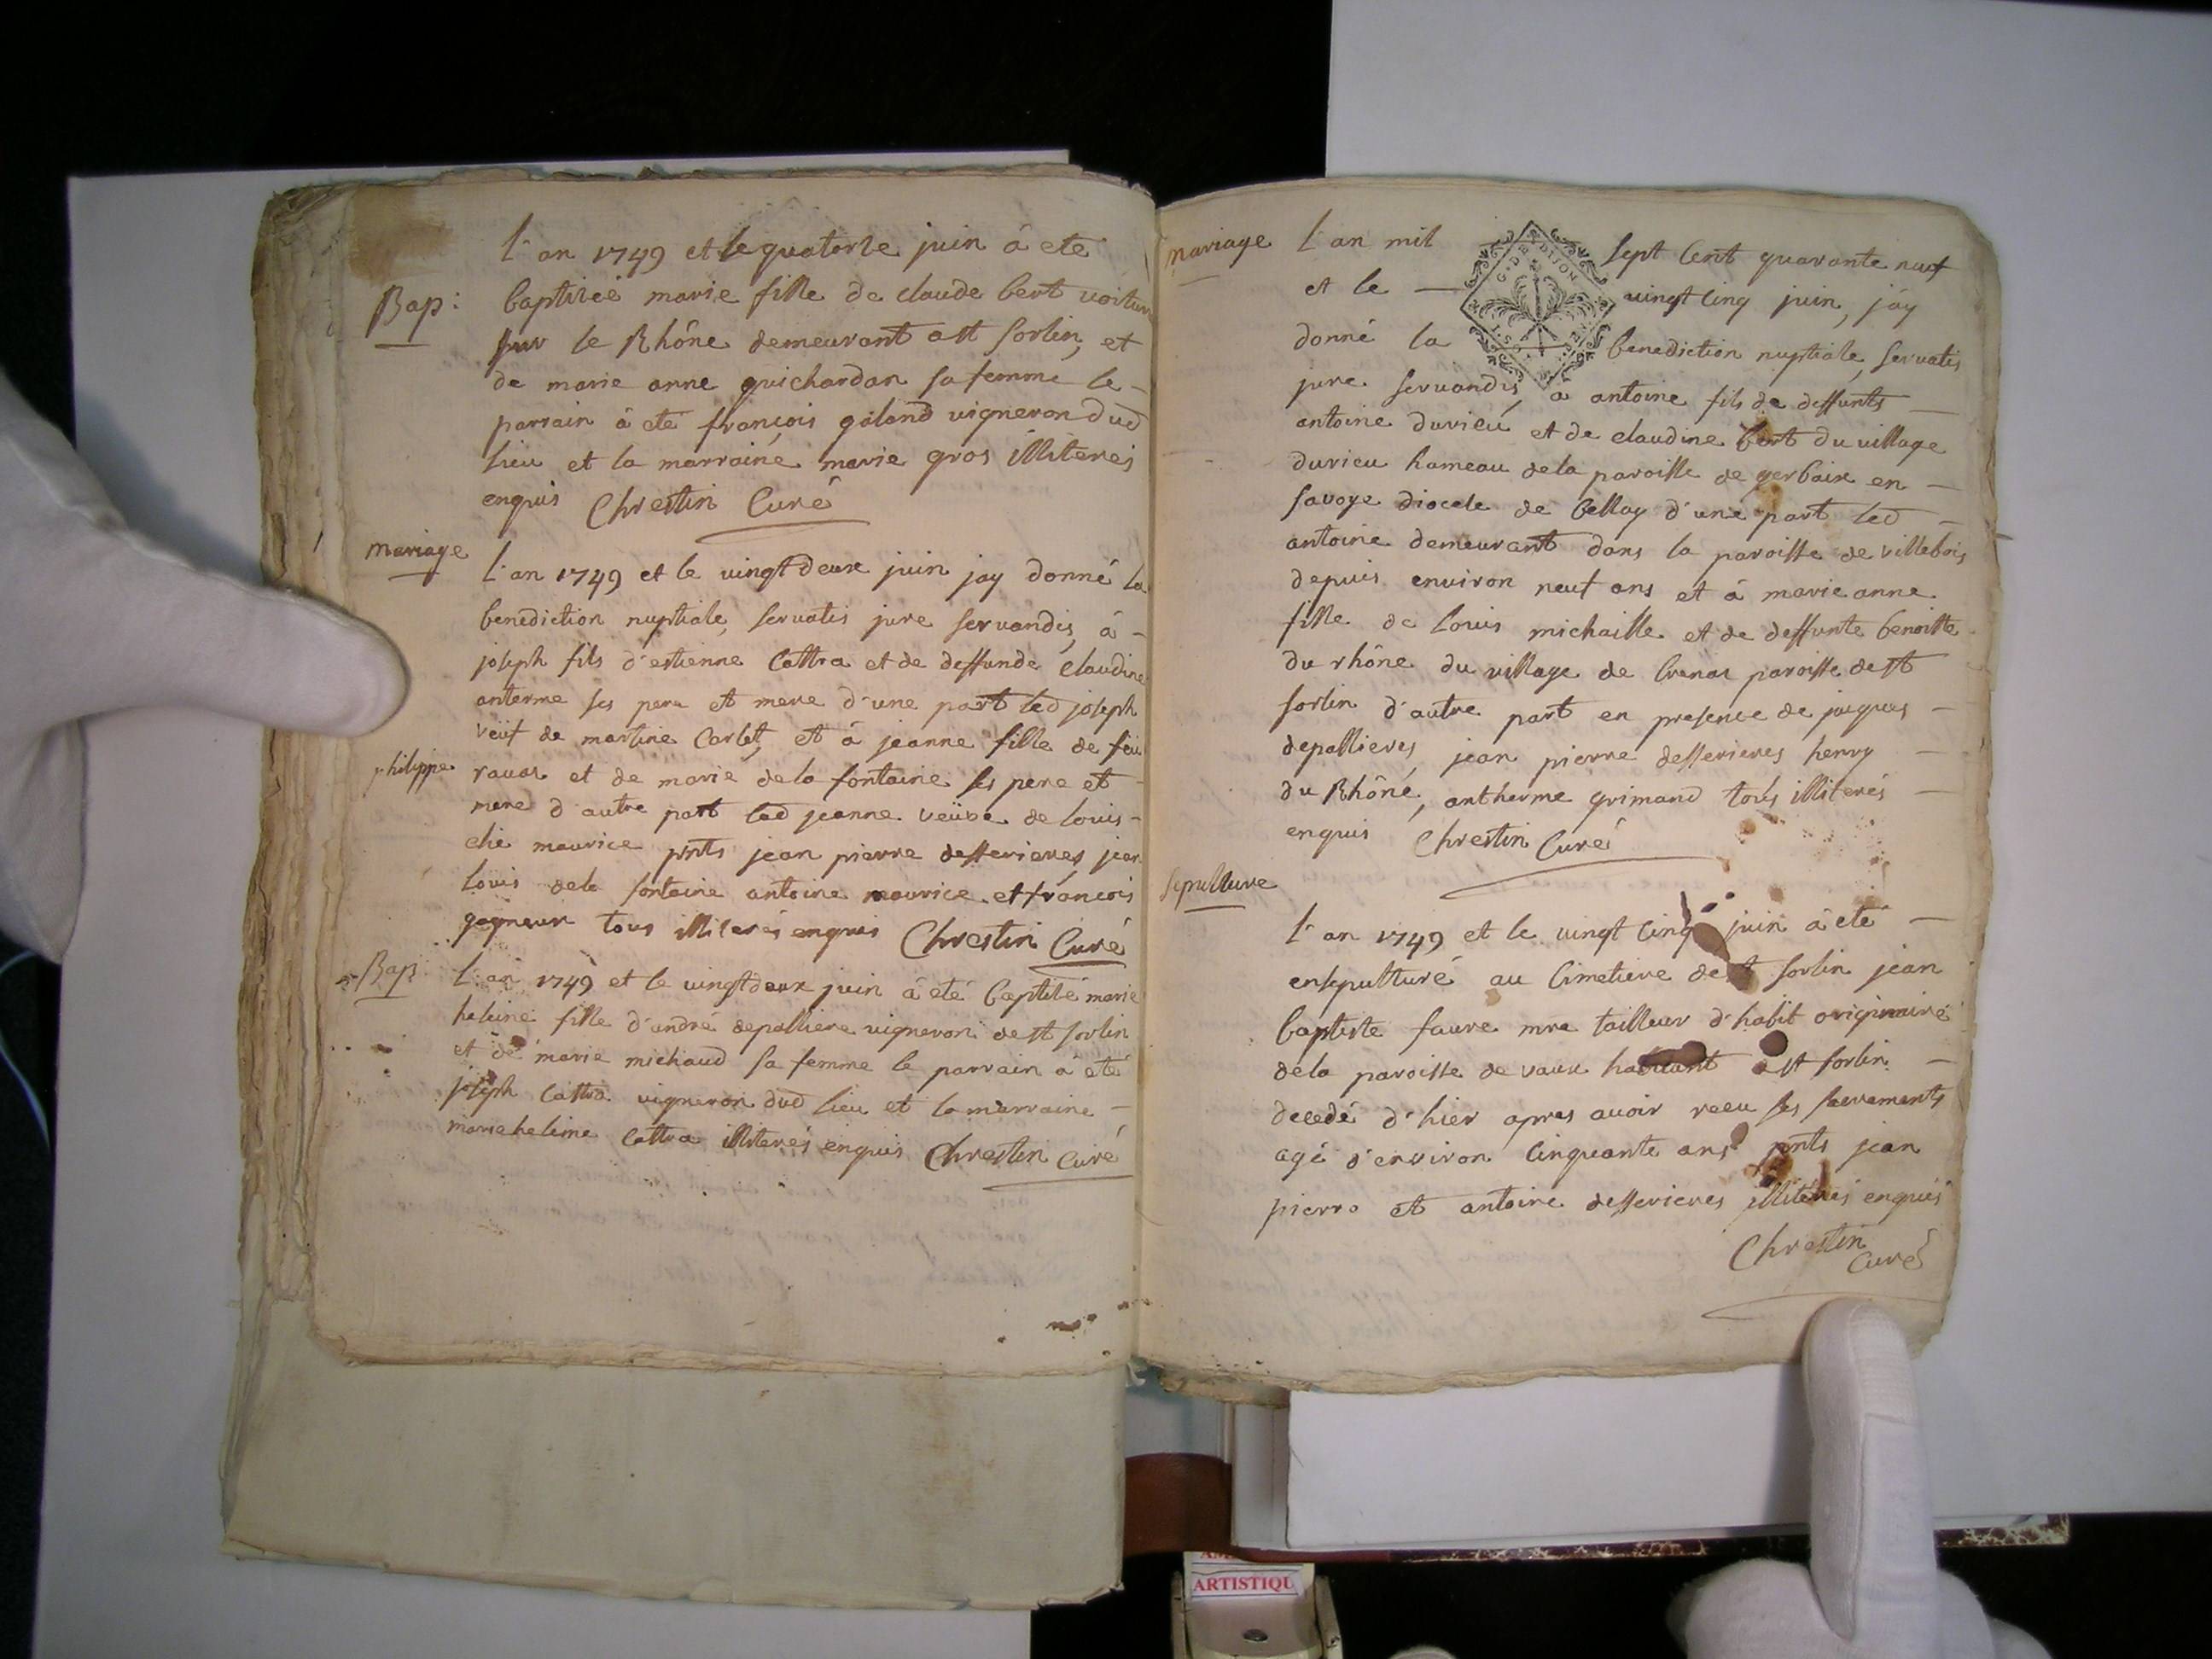 L'an 1749 et le quatorse juin à eté
Bap: baptisée marie fille de claude bert voitur
sur le Rhône demeurant a st sorlin, et
de marie anne guichardan sa femme le -
parrain à eté françois galand vigneron dud
lieu et la marraine marie gros illiterés
enquis Chrestin Curé
mariage L'an 1749 et le vingt deux juin jay donné la
benediction nuptiale, servatis jure servandis, à -
joseph fils d'estienne Cattra et de deffunde claudine
anterme ses pere et mere d'une part led joseph
veuf de martine Carlet, et à jeanne fille de feu
philippe ravas et de marie dela fontaine ses pere et
mere d'autre part lad jeanne veüve de louis -
elie maurice pnts jean pierre desserieres, jean
louis dela fontaine antoine maurice et françois
gagneur tous illiterés enquis Chrestin Curé
Bap L'an 1749 et le vingt deux juin à eté baptisé marie
heleine fille d'andré depalliere vigneron de st sorlin
et de marie michaud sa femme le parrain à eté
joseph Cattra vigneron dud lieu et la marraine -
marie heleine Cattra illiterés enquis Chrestin Curé
mariage L'an mil sept Cent quarante neuf
et le - vingt Cinq juin, jáy
donné la benediction nuptiale, servatis
jure servandis, à antoine fils de deffunts -
antoine durieu et de claudine bert du village
durieu hameau dela paroisse de gerbaix en -
savoye diocese de bellay d'une part led -
antoine demeurant dans la paroisse de villebois
depuis environ neuf ans et à marie anne
fille de louis michaille et de deffunte benoitte
du rhône du village de Crenas paroisse de st
sorlin d'autre part en presence de jacques -
depallieres, jean pierre desserieres henry -
du Rhône, antherme grimand tous illiterés -
enquis Chrestin Curé
sepulture
L'an 1749 et le vingt Cinq juin à eté -
ensepulturé au Cimetiere de st sorlin jean
baptiste faure mre tailleur d'habit originaire
dela paroisse de vaux habitant a st sorlin -
decedé d'hier apres avoir receu ses sacrements
agé d'environ Cinquante ans pnts jean
pierre et antoine desserieres illiterés enquis
Chrestin
Curé
G. D. DIJON
ARTISTIQU